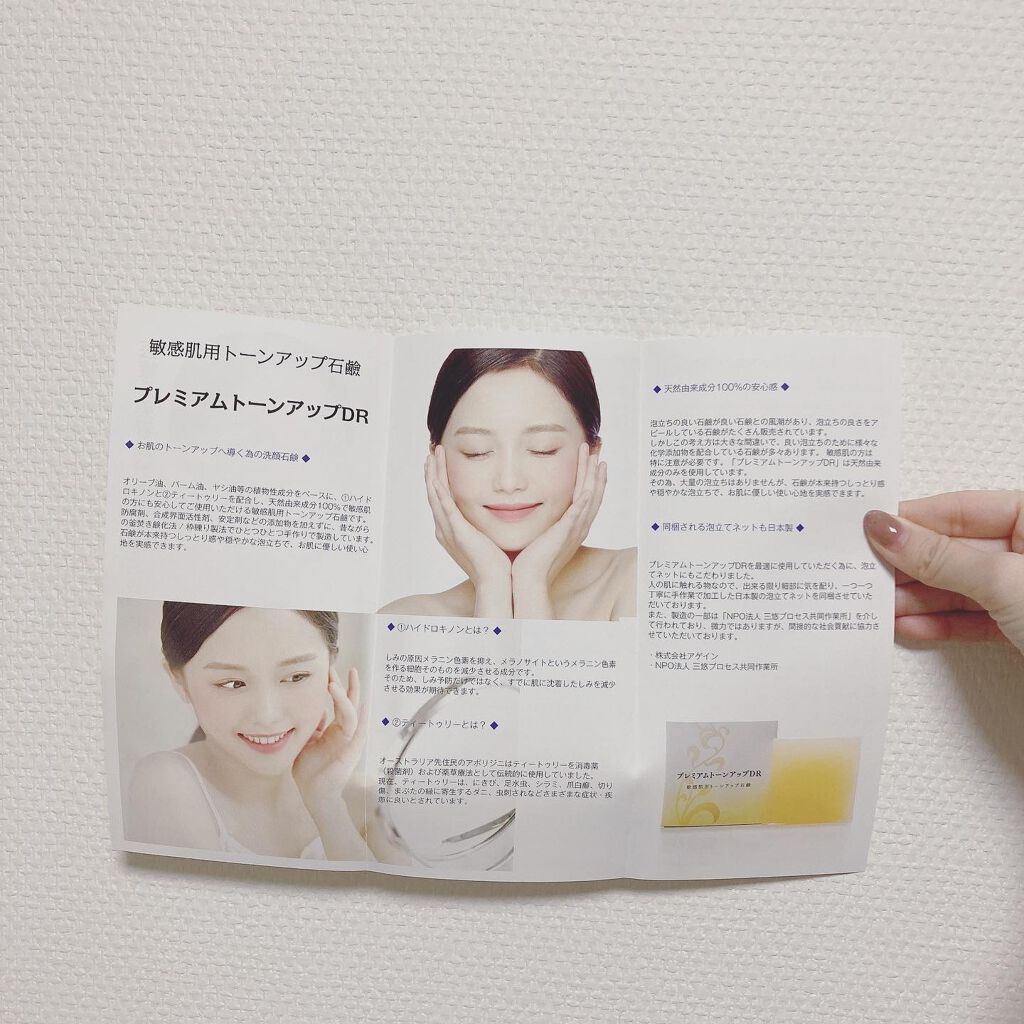 敏感肌用トーンアップ石鹸
プレミアムトーンアップDR
◆ お肌のトーンアップへ導く為の洗顔石鹸 ◆
オリーブ油、パーム油、ヤシ油等の植物性成分をベースに、①ハイド
ロキノンと②ティートゥリーを配合し、天然由来成分100%で敏感肌
の方にも安心してご使用いただける敏感肌用トーンアップ石鹸です。
防腐剤、合成界面活性剤、安定剤などの添加物を加えずに、昔ながら
の釜焚き鹸化法/枠練り製法でひとつひとつ手作りで製造しています。
石鹸が本来持つしっとり感や穏やかな泡立ちで、お肌に優しい使い心
地を実感できます。
◆ ①ハイドロキノンとは? ◆
しみの原因メラニン色素を抑え、メラノサイトというメラニン色素
を作る細胞そのものを減少させる成分です。
そのため、しみ予防だけではなく、すでに肌に沈着したしみを減少
させる効果が期待できます。
◆ ②ティートゥリーとは? ◆
オーストラリア先住民のアボリジニはティートゥリーを消毒薬
(殺菌剤)および薬草療法として伝統的に使用していました。
現在、ティートゥリーは、にきび、足水虫、シラミ、爪白癬、切り
傷、まぶたの縁に寄生するダニ、虫刺されなどさまざまな症状・疾
患に良いとされています。
◆ 天然由来成分100%の安心感 ◆
泡立ちの良い石鹸が良い石鹸との風潮があり、泡立ちの良さをア
ピールしている石鹸がたくさん販売されています。
しかしこの考え方は大きな間違いで、良い泡立ちのために様々な
化学添加物を配合している石鹸が多々あります。 敏感肌の方は
特に注意が必要です。「プレミアムトーンアップDR」は天然由来
成分のみを使用しています。
その為、大量の泡立ちはありませんが、石鹸が本来持つしっとり感
や穏やかな泡立ちで、お肌に優しい使い心地を実感できます。
◆ 同梱される泡立てネットも日本製 ◆
プレミアムトーンアップDRを最適に使用していただく為に、泡立
てネットにもこだわりました。
人の肌に触れる物なので、出来る限り細部に気を配り、一つ一つ
丁寧に手作業で加工した日本製の泡立てネットを同梱させていた
だいております。
また、製造の一部は「NPO法人 三悠プロセス共同作業所」を介し
て行われており、微力ではありますが、間接的な社会貢献に協力さ
せていただいております。
・株式会社アゲイン
・NPO法人 三悠プロセス共同作業所
プレミアムトーンアップDR
敏感肌用トーンアップ石鹸